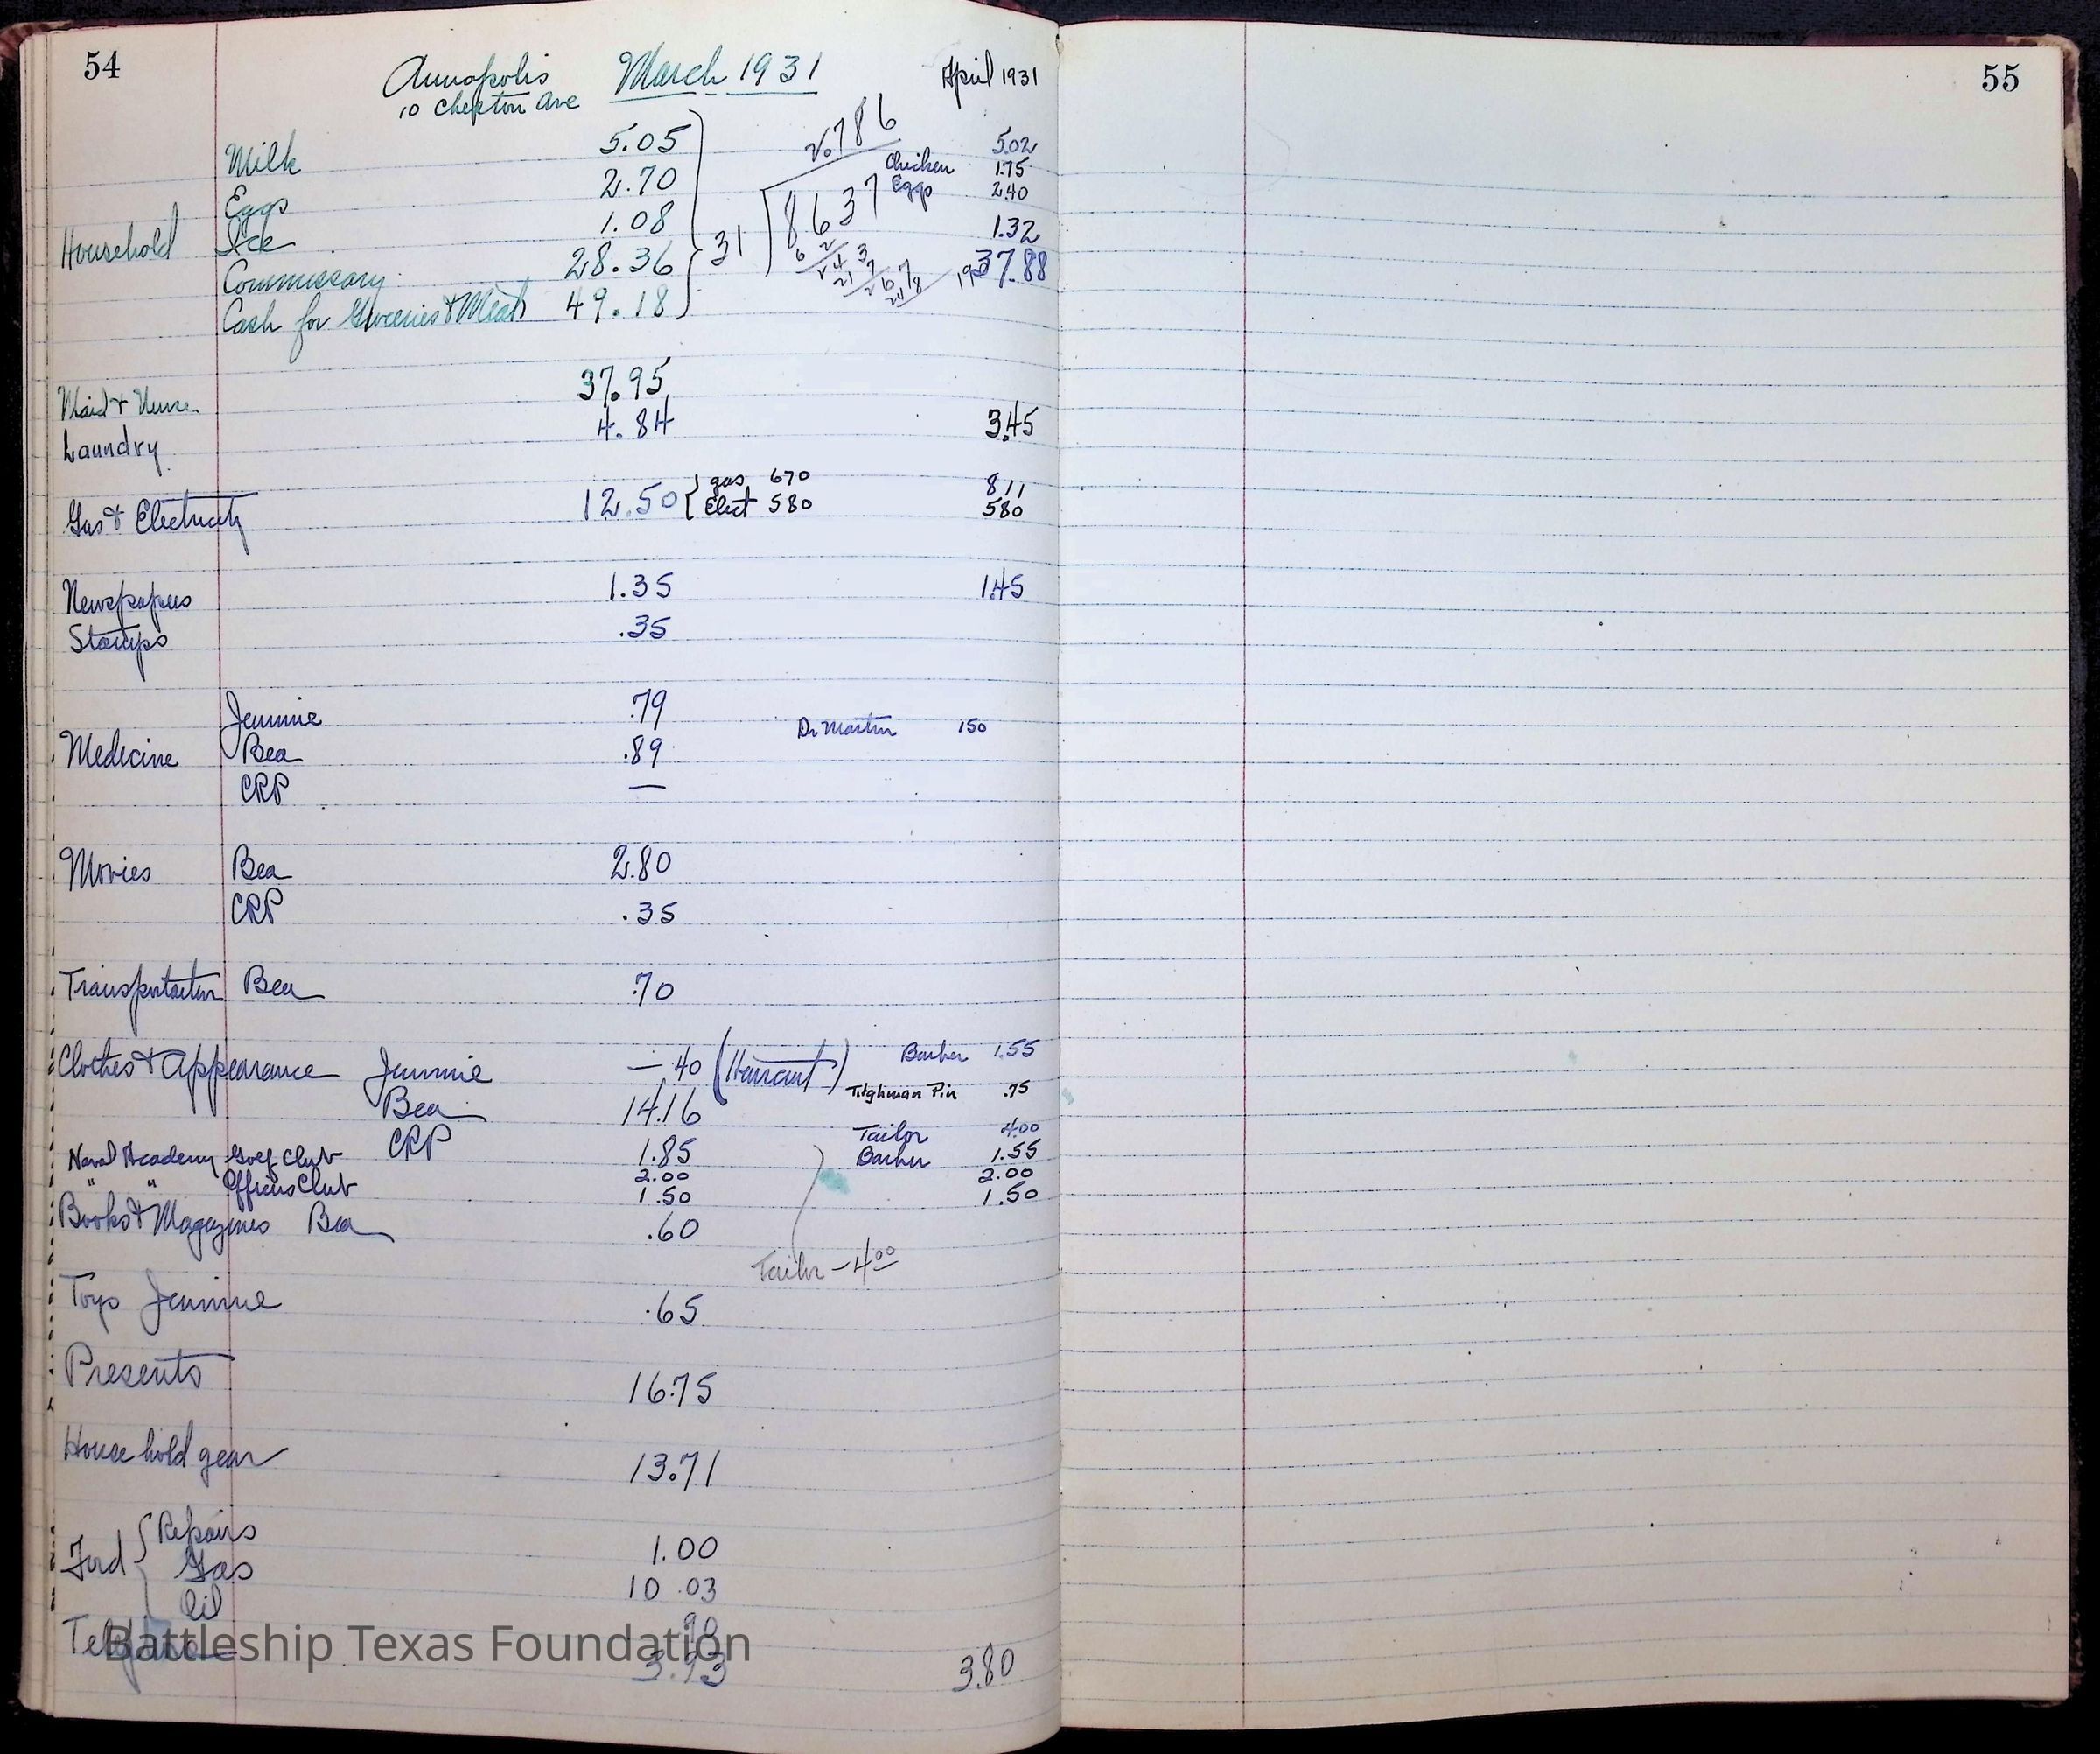 54
55
Annapolis March 1931 April 1931
10 Cheston Ave
Milk 5.05 5.02
Chicken 1.75
Eggs 2.70 Eggs 2.40
Household Ice 1.08 1.32
Commissary 28.36 37.88
Cash for Groceries & Meat 49.18
2.786
31 8637
62
24 3
21 7
2 67
248
19
Maid & Nurse 37.95
Laundry 4.84 3.45
Gas & Electricity 12.50 { gas 670 811
Elect 580 580
Newspapers 1.35 1.45
Stamps .35
Jeannie .79
Medicine Bea .89 Dr Martin 150
CRP —
Movies Bea 2.80
CRP .35
Transportation Bea .70
Clothes & Appearance Jeannie — 40 (Haircut) Barber 1.55
Bea 14.16 Tilghman Pin .75
Tailor 4.00
CRP 1.85 Barber 1.55
Naval Academy Golf Club 2.00 2.00
" " Officers Club 1.50 1.50
Books & Magazines Bea .60
Tailor – 4.00
Toys Jeannie .65
Presents 16.75
Household gear 13.71
Ford { Repairs 1.00
Gas 10.03
Oil .90
Telephone 3.93 3.80
Battleship Texas Foundation